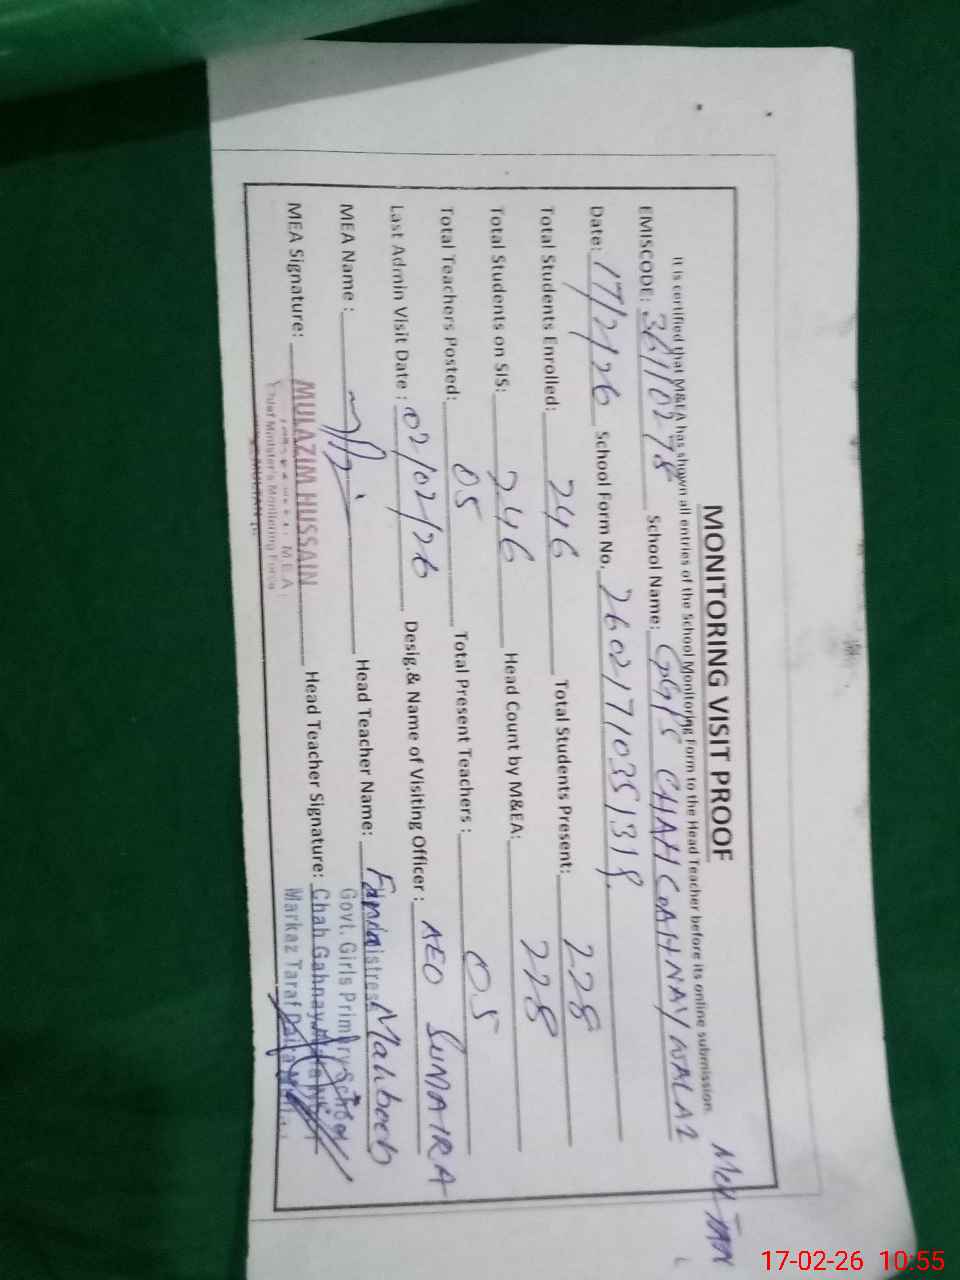 MONITORING VISIT PROOF
It is certified that M&EA has shown all entries of the School Monitoring Form to the Head Teacher before its online submission.
EMISCODE: 36110278 School Name: GGPS CHAH GAHNAY WALA2 MULTAN
Date: 17/2/26 School Form No. 26021710351318
Total Students Enrolled: 246 Total Students Present: 228
Total Students on SIS: 246 Head Count by M&EA: 228
Total Teachers Posted: 05 Total Present Teachers : 05
Last Admin Visit Date : 02/02/26 Desig.& Name of Visiting Officer : AEO SUMAIRA
MEA Name : Head Teacher Name: Mahboob
Govt. Girls Primary School
MEA Signature: MULAZIM HUSSAIN Head Teacher Signature: Chah Gahnay
M.E.A
Chief Minister's Monitoring Force
MULTAN
Markaz Taraf
17-02-26 10:55